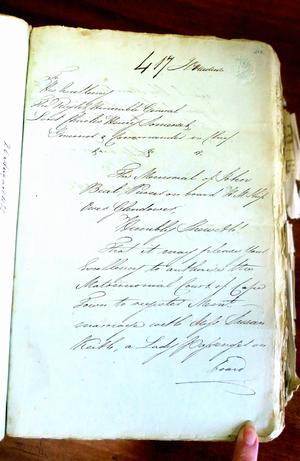 417
To
His Excellency
The Right Honorable General
Lord Charles Henry Somerset
Governor & Commander in Chief
&c &c &c
The Memorial of John
Board His Majesty's Ship
Humbly Sheweth!
That it may please Your
Excellency to authorize the
Matrimonial Court of Cape
Town to register Mem:t
marriage with Miss Susan
Keith, a Lady Passenger on
Board